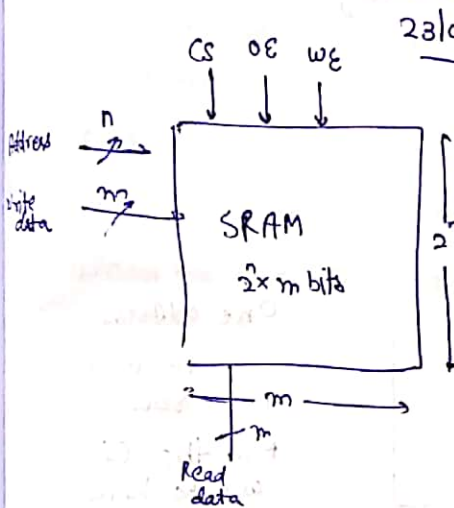 23/0
CS OE WE
n
Address
m
Write data
SRAM
2ⁿ x m bits
2
m
m
Read
data